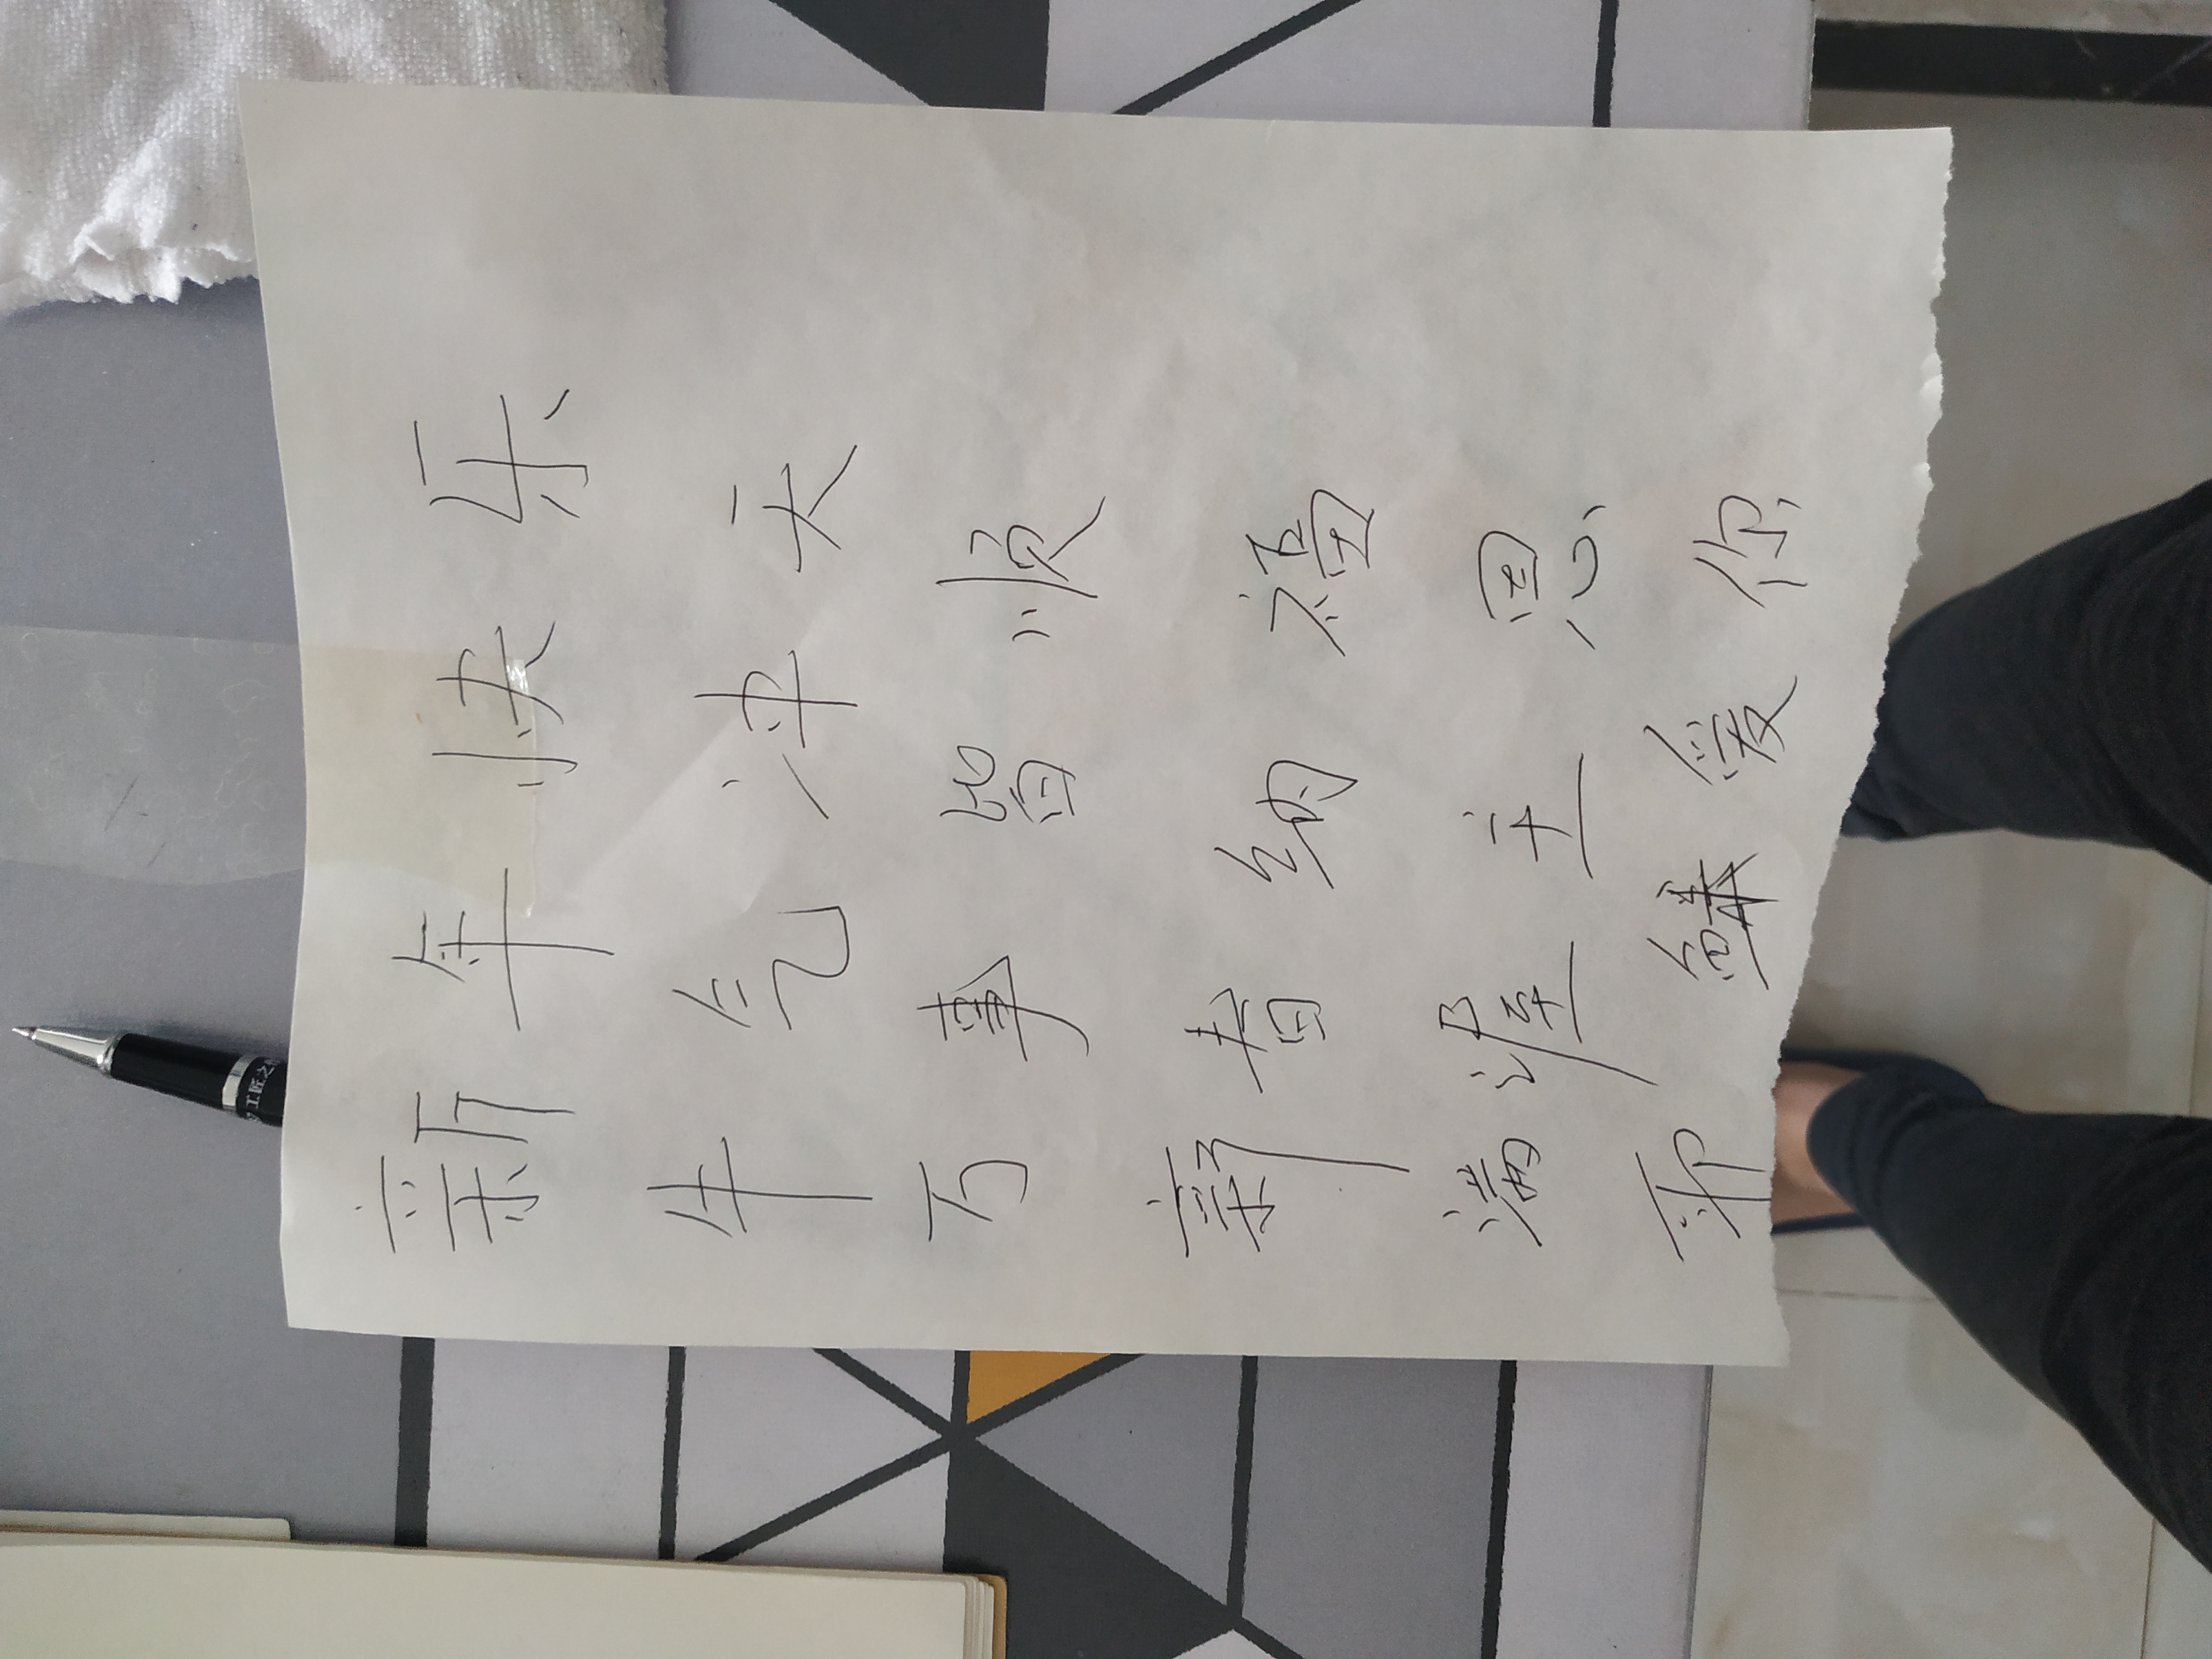 工匠之
新年快乐
牛气冲天
万事皆顺
新春纳福
满渥主恩
耶稣爱你